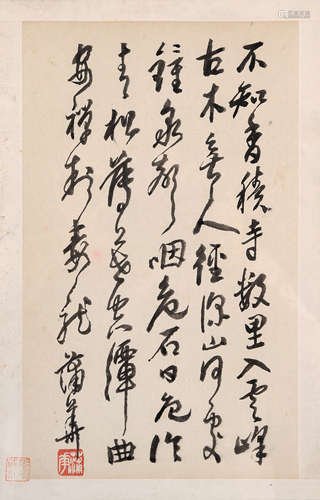 不知香積寺數里入雲峰
古木無人徑深山何處
鐘泉聲咽危石日色冷
青松薄暮空潭曲
安禪制毒龍 蒲華